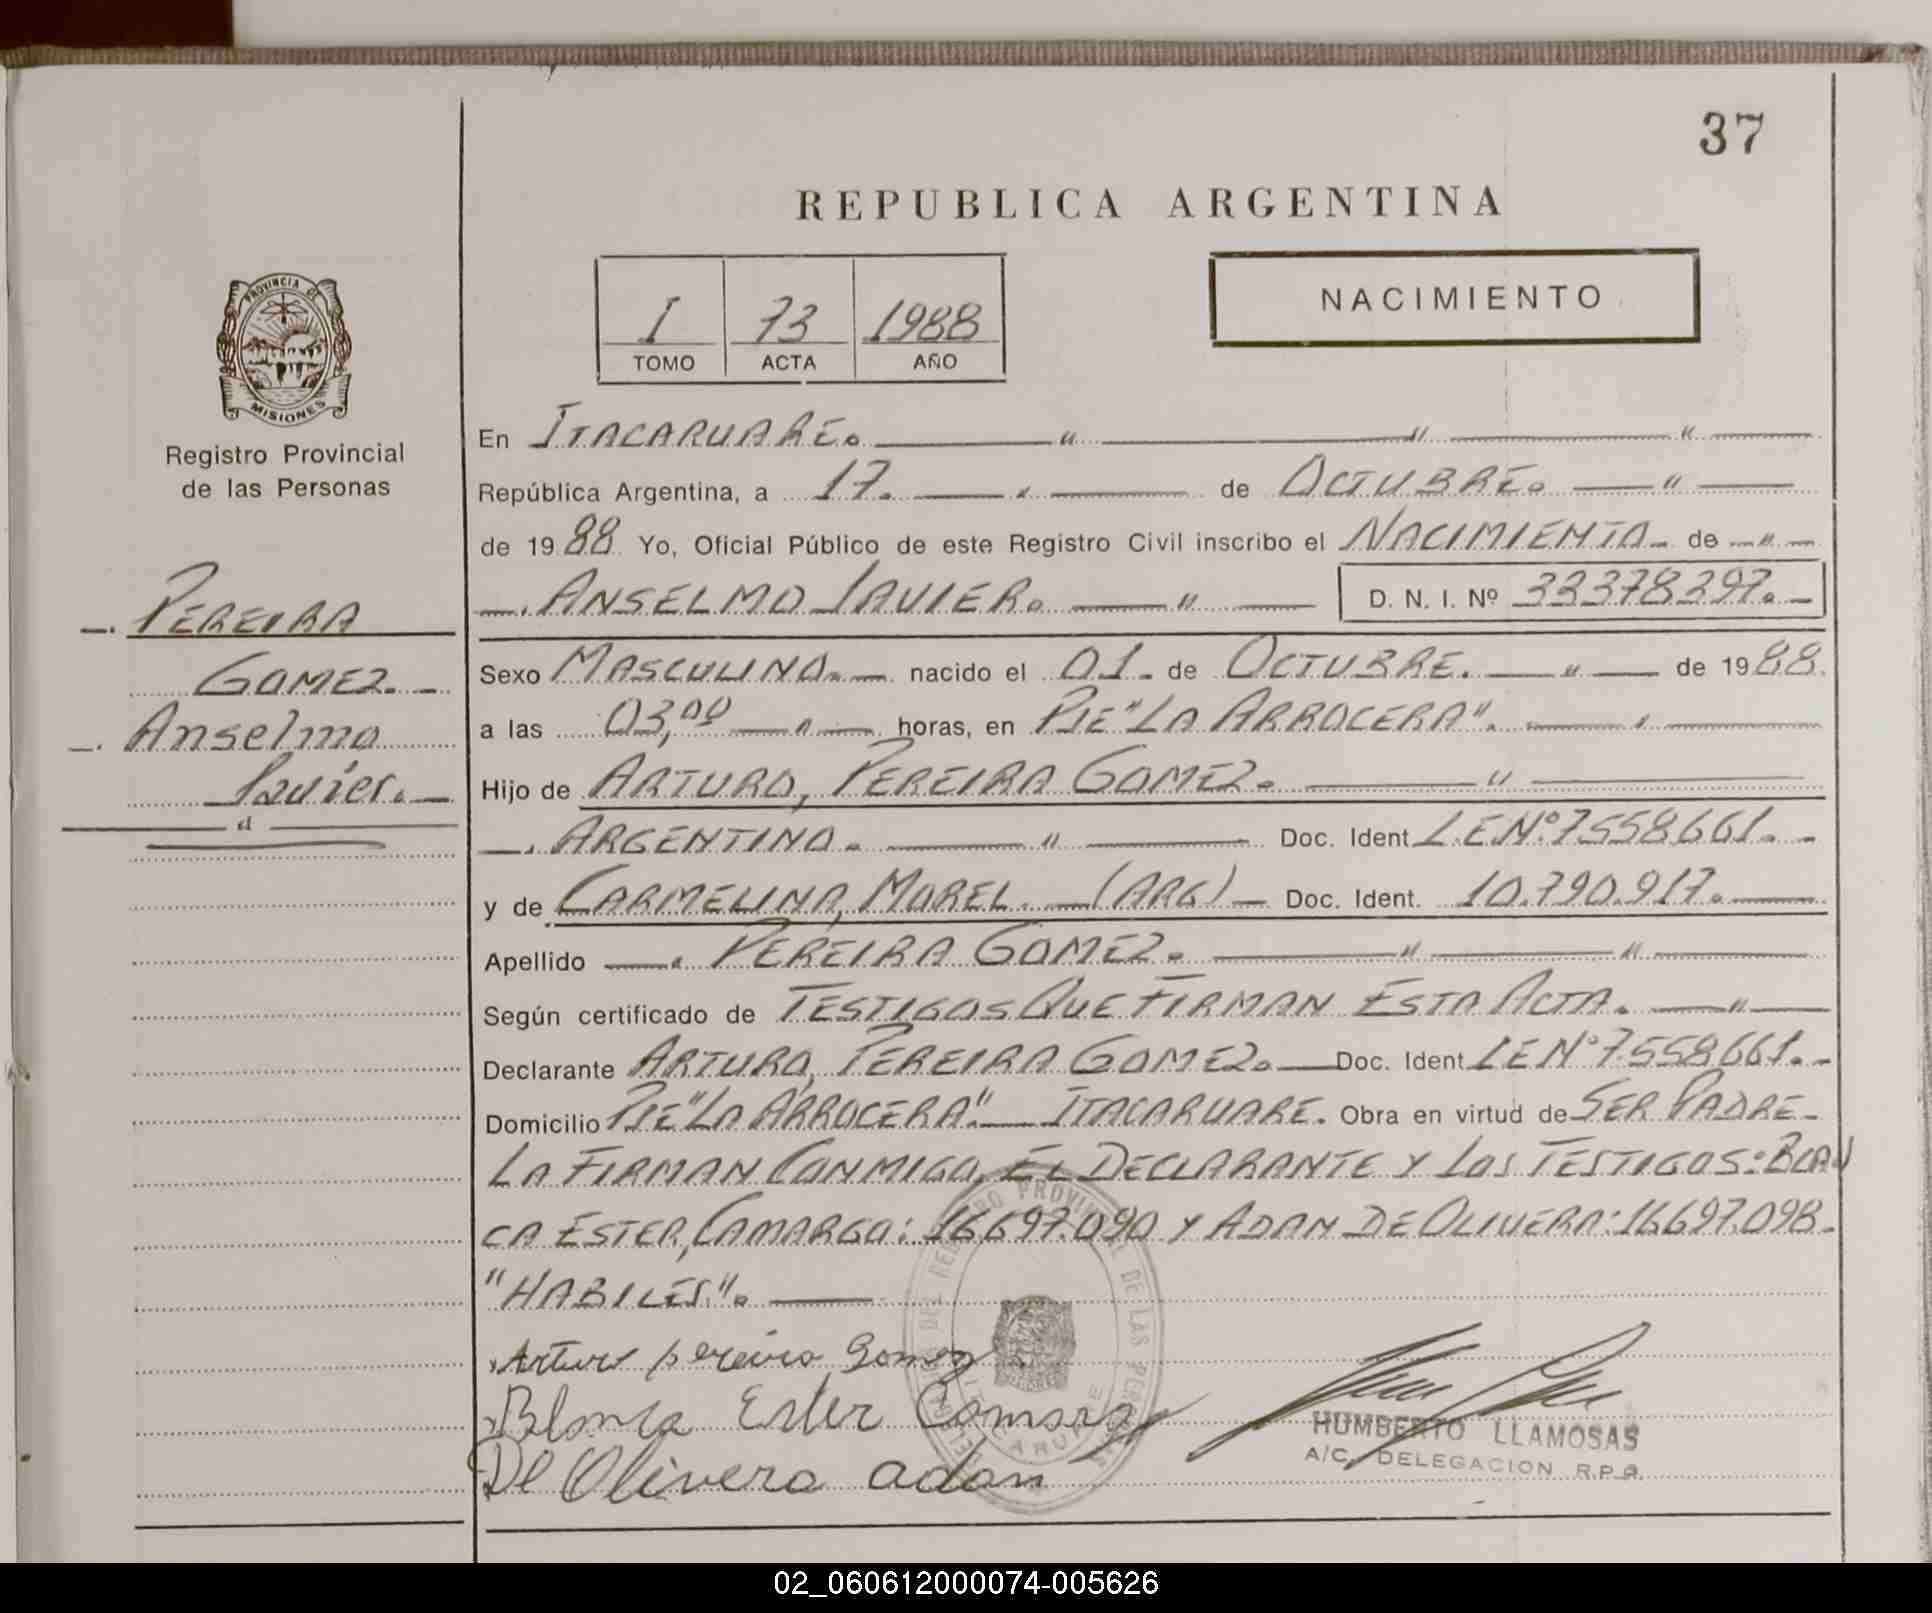 37
REPUBLICA ARGENTINA
I 73 1988
TOMO ACTA AÑO
NACIMIENTO
PROVINCIA DE
MISIONES
Registro Provincial
de las Personas
—. PEREIRA
GOMEZ. —
—. Anselmo
Javier. —
En ITACARUARE. — " — " — " —
República Argentina, a 17. — " — de OCTUBRE. — " —
de 1988 Yo, Oficial Público de este Registro Civil inscribo el NACIMIENTO — de — " —
—. ANSELMO JAVIER. — " — D. N. I. Nº 33378397. —
Sexo MASCULINO. — nacido el 01 - de OCTUBRE. — " — de 1988
a las 03,00 — " — horas, en PJE "LA ARROCERA". — " —
Hijo de ARTURO, PEREIRA GOMEZ. — " —
—. ARGENTINO. — " — Doc. Ident L.E.Nº 7558661. —
y de CARMELINA, MOREL. — (ARG) — Doc. Ident. 10.790.917. —
Apellido —. PEREIRA GOMEZ. — " — " —
Según certificado de TESTIGOS QUE FIRMAN ESTA ACTA. — " —
Declarante ARTURO, PEREIRA GOMEZ. — Doc. Ident LE Nº 7.558661. —
Domicilio PJE "LA ARROCERA". — ITACARUARE. Obra en virtud de SER PADRE —
LA FIRMAN CONMIGO, EL DECLARANTE Y LOS TESTIGOS: BLAN
CA ESTER, CAMARGO: 16.697.090 Y ADAN DE OLIVERA: 16.697.098. —
"HABILES". —
Arturo pereira Gomez
Blanca Ester Camargo
De Olivera adan
HUMBERTO LLAMOSAS
A/C. DELEGACION R.P.P.
02_060612000074-005626